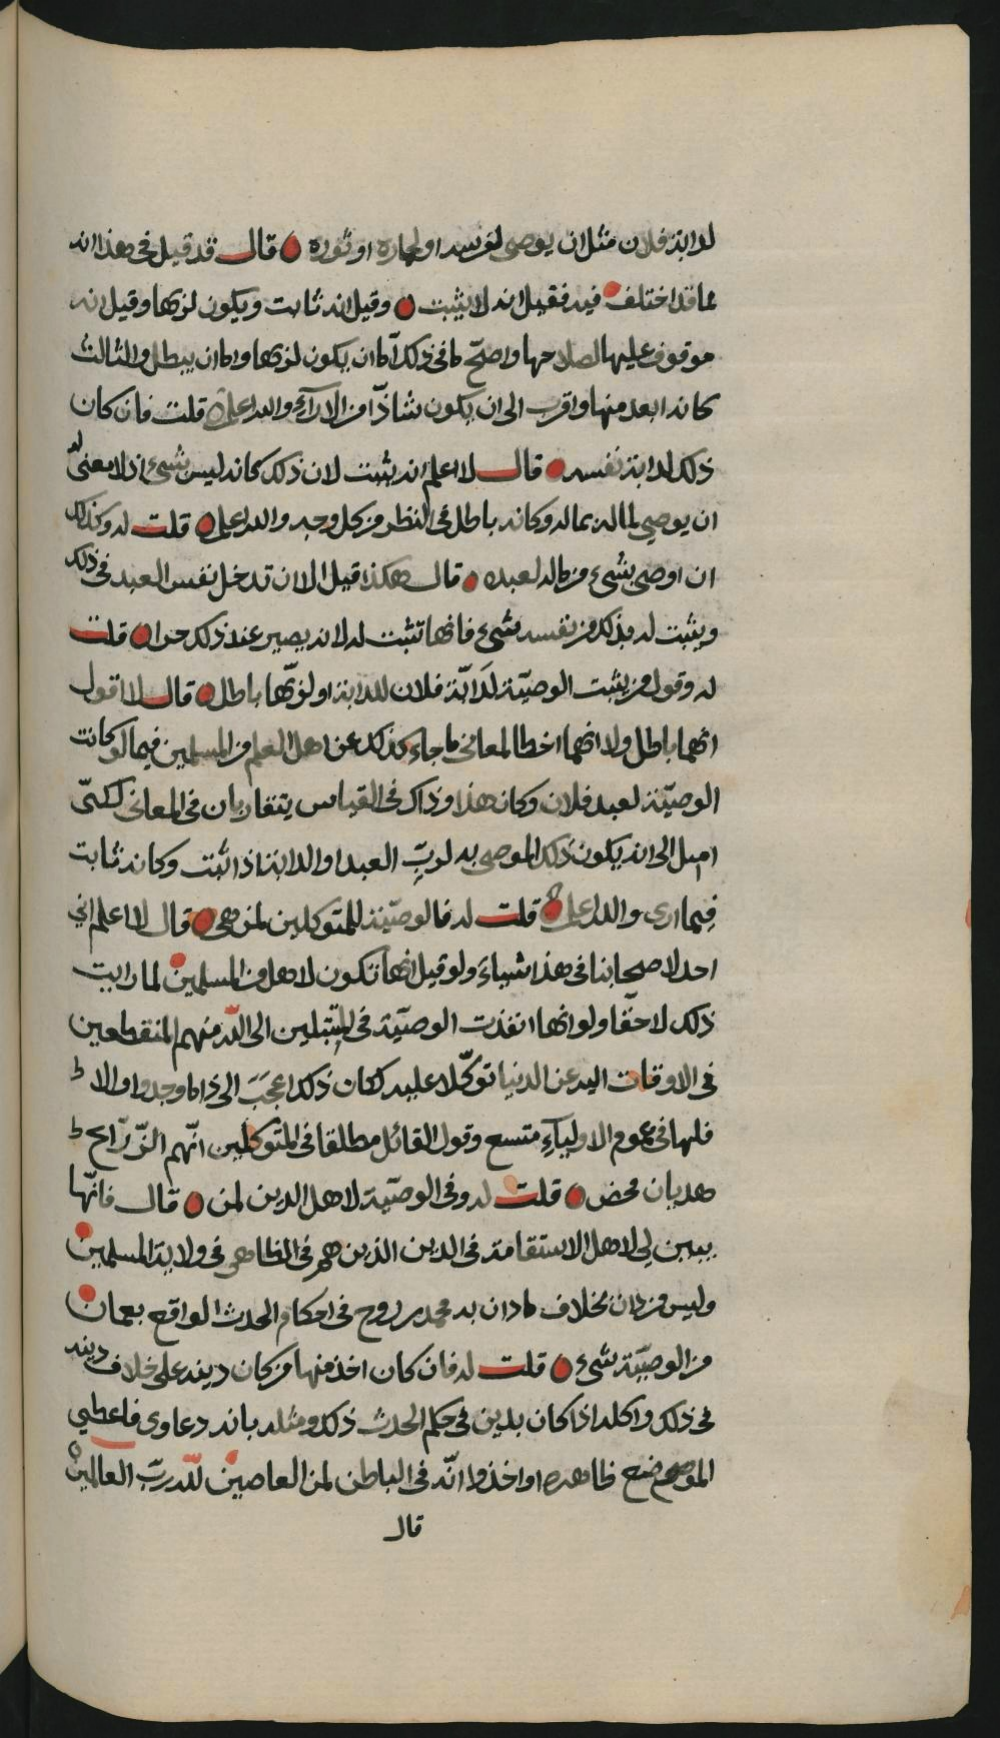 لدابة فلان مثل ان يوصي لفرسه او لحماره او ثوره قال قد قيل في هذا انه
مما قد اختلف فيه فقيل انه لا يثبت وقيل انه ثابت ويكون لربها وقيل انه
موقوف عليها لصلاحها واصحّ ما في ذلك اما ان يكون لربها واما ان يبطل والثالث
كانه ابعد منها واقرب الى ان يكون شاذّا من الارآء والله اعلم قلت فان كان
ذلك لدابة نفسه قال لا اعلم انه يثبت لان ذلك كانه ليس بشيء اذ لا معنى له
ان يوصي لماله بماله وكانه باطل في النظر من كل وجه والله اعلم قلت له وكذلك
ان اوصى بشيء من ماله لعبده قال هكذا قيل الا ان تدخل نفس العبد في ذلك
ويثبت له بذلك من نفسه شيء فانها تثبت له لانه يصير عند ذلك حرا قلت
له وقول من يثبت الوصيّة لدَابّة فلان للدابة او لربّها باطل قال لا اقول
انهما باطل ولا انهما اخطا لمعاني ما جاء كذلك عن اهل العلم من المسلمين فيما لو كانت
الوصيّة لعبد فلان وكان هذا وذاك في القياس يتقاربان في المعاني لكنّي
اميل الى انه يكون ذلك الموصى به لربّ العبد او الدابة اذا ثبت وكانه ثابت
فيما ارى والله اعلم قلت له فالوصيّة للمتوكلين لمن هي قال لا اعلم اني
احد لاصحابنا في هذا شياءً ولو قيل انها تكون لاهل من المسلمين لما رايت
ذلك لاحقّا ولو انها انفذت الوصيّة في المتبتلين الى اللّه منهم المنقطعين
في الاوقات اليه عن الدنيا توكّلا عليه لكان ذلك اعجَبَ الى ذا ما وجدوا والا
فلها في عموم الاوليآءِ متسع وقول القائل مطلقا في المتوكلين انّهم الزّرّايح
هديان محض قلت له وفي الوصيّة لاهل الدين لمن قال فانّها
يبين لي لاهل الاستقامة في الدين الذين هم في الظاهر في ولاية المسلمين
وليس من دان بخلاف ما دان به محمد بن روح في احكام الحدث الواقع بعمان
من الوصيّة بشيء قلت له فان كان اخذ منها من كان دينه على خلاف دينه
في ذلك واكله اذا كان بدين في حكم الحدث ذلك ومثله بانه دعاوى فاعطي
ظاهره او اخذوا انّه في الباطن لمن العاصين للّه ربّ العالمين
قال